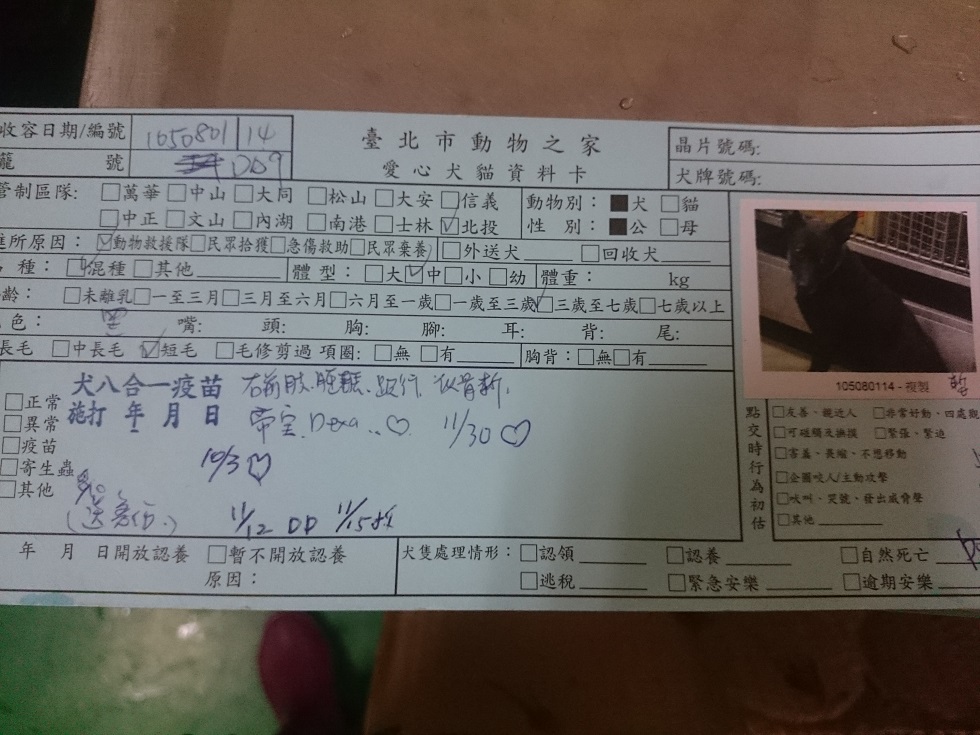 收容日期/編號 1050801 14
臺北市動物之家
晶片號碼:
籠 號 D09
愛心犬貓資料卡
犬牌號碼:
管制區隊: □萬華□中山□大同 □松山□大安□信義 動物別:■犬 □貓
□中正□文山□內湖 □南港□士林☑北投 性 別:■公 □母
進所原因:☑動物救援隊□民眾拾獲□急傷救助□民眾棄養 □外送犬 □回收犬
種:☑混種□其他 體 型:□大☑中□小□幼 體重: kg
齡: □未離乳□一至三月□三月至六月□六月至一歲□一歲至三歲☑三歲至七歲□七歲以上
色: 黑 嘴: 頭: 胸: 腳: 耳: 背: 尾:
長毛 □中長毛 ☑短毛 □毛修剪過 項圈:□無 □有 胸背:□無□有
105080114 - 複製
犬八合一疫苗
施打 年 月 日
右前肢腫脹、跛行
Dexa
11/30 ♡
10/3 ♡
11/12 DD 11/15
□正常
□異常
□疫苗
□寄生蟲
□其他
點交時行為初估
□友善、親近人 □非常好動、四處
□可碰觸及撫摸 □緊張、緊迫
□害羞、畏縮、不想移動
□企圖咬人/主動攻擊
□吠叫、哭號、發出威脅聲
□其他
年 月 日開放認養 □暫不開放認養
原因:
犬隻處理情形:□認領 □認養 □自然死亡
□逃稅 □緊急安樂 □逾期安樂